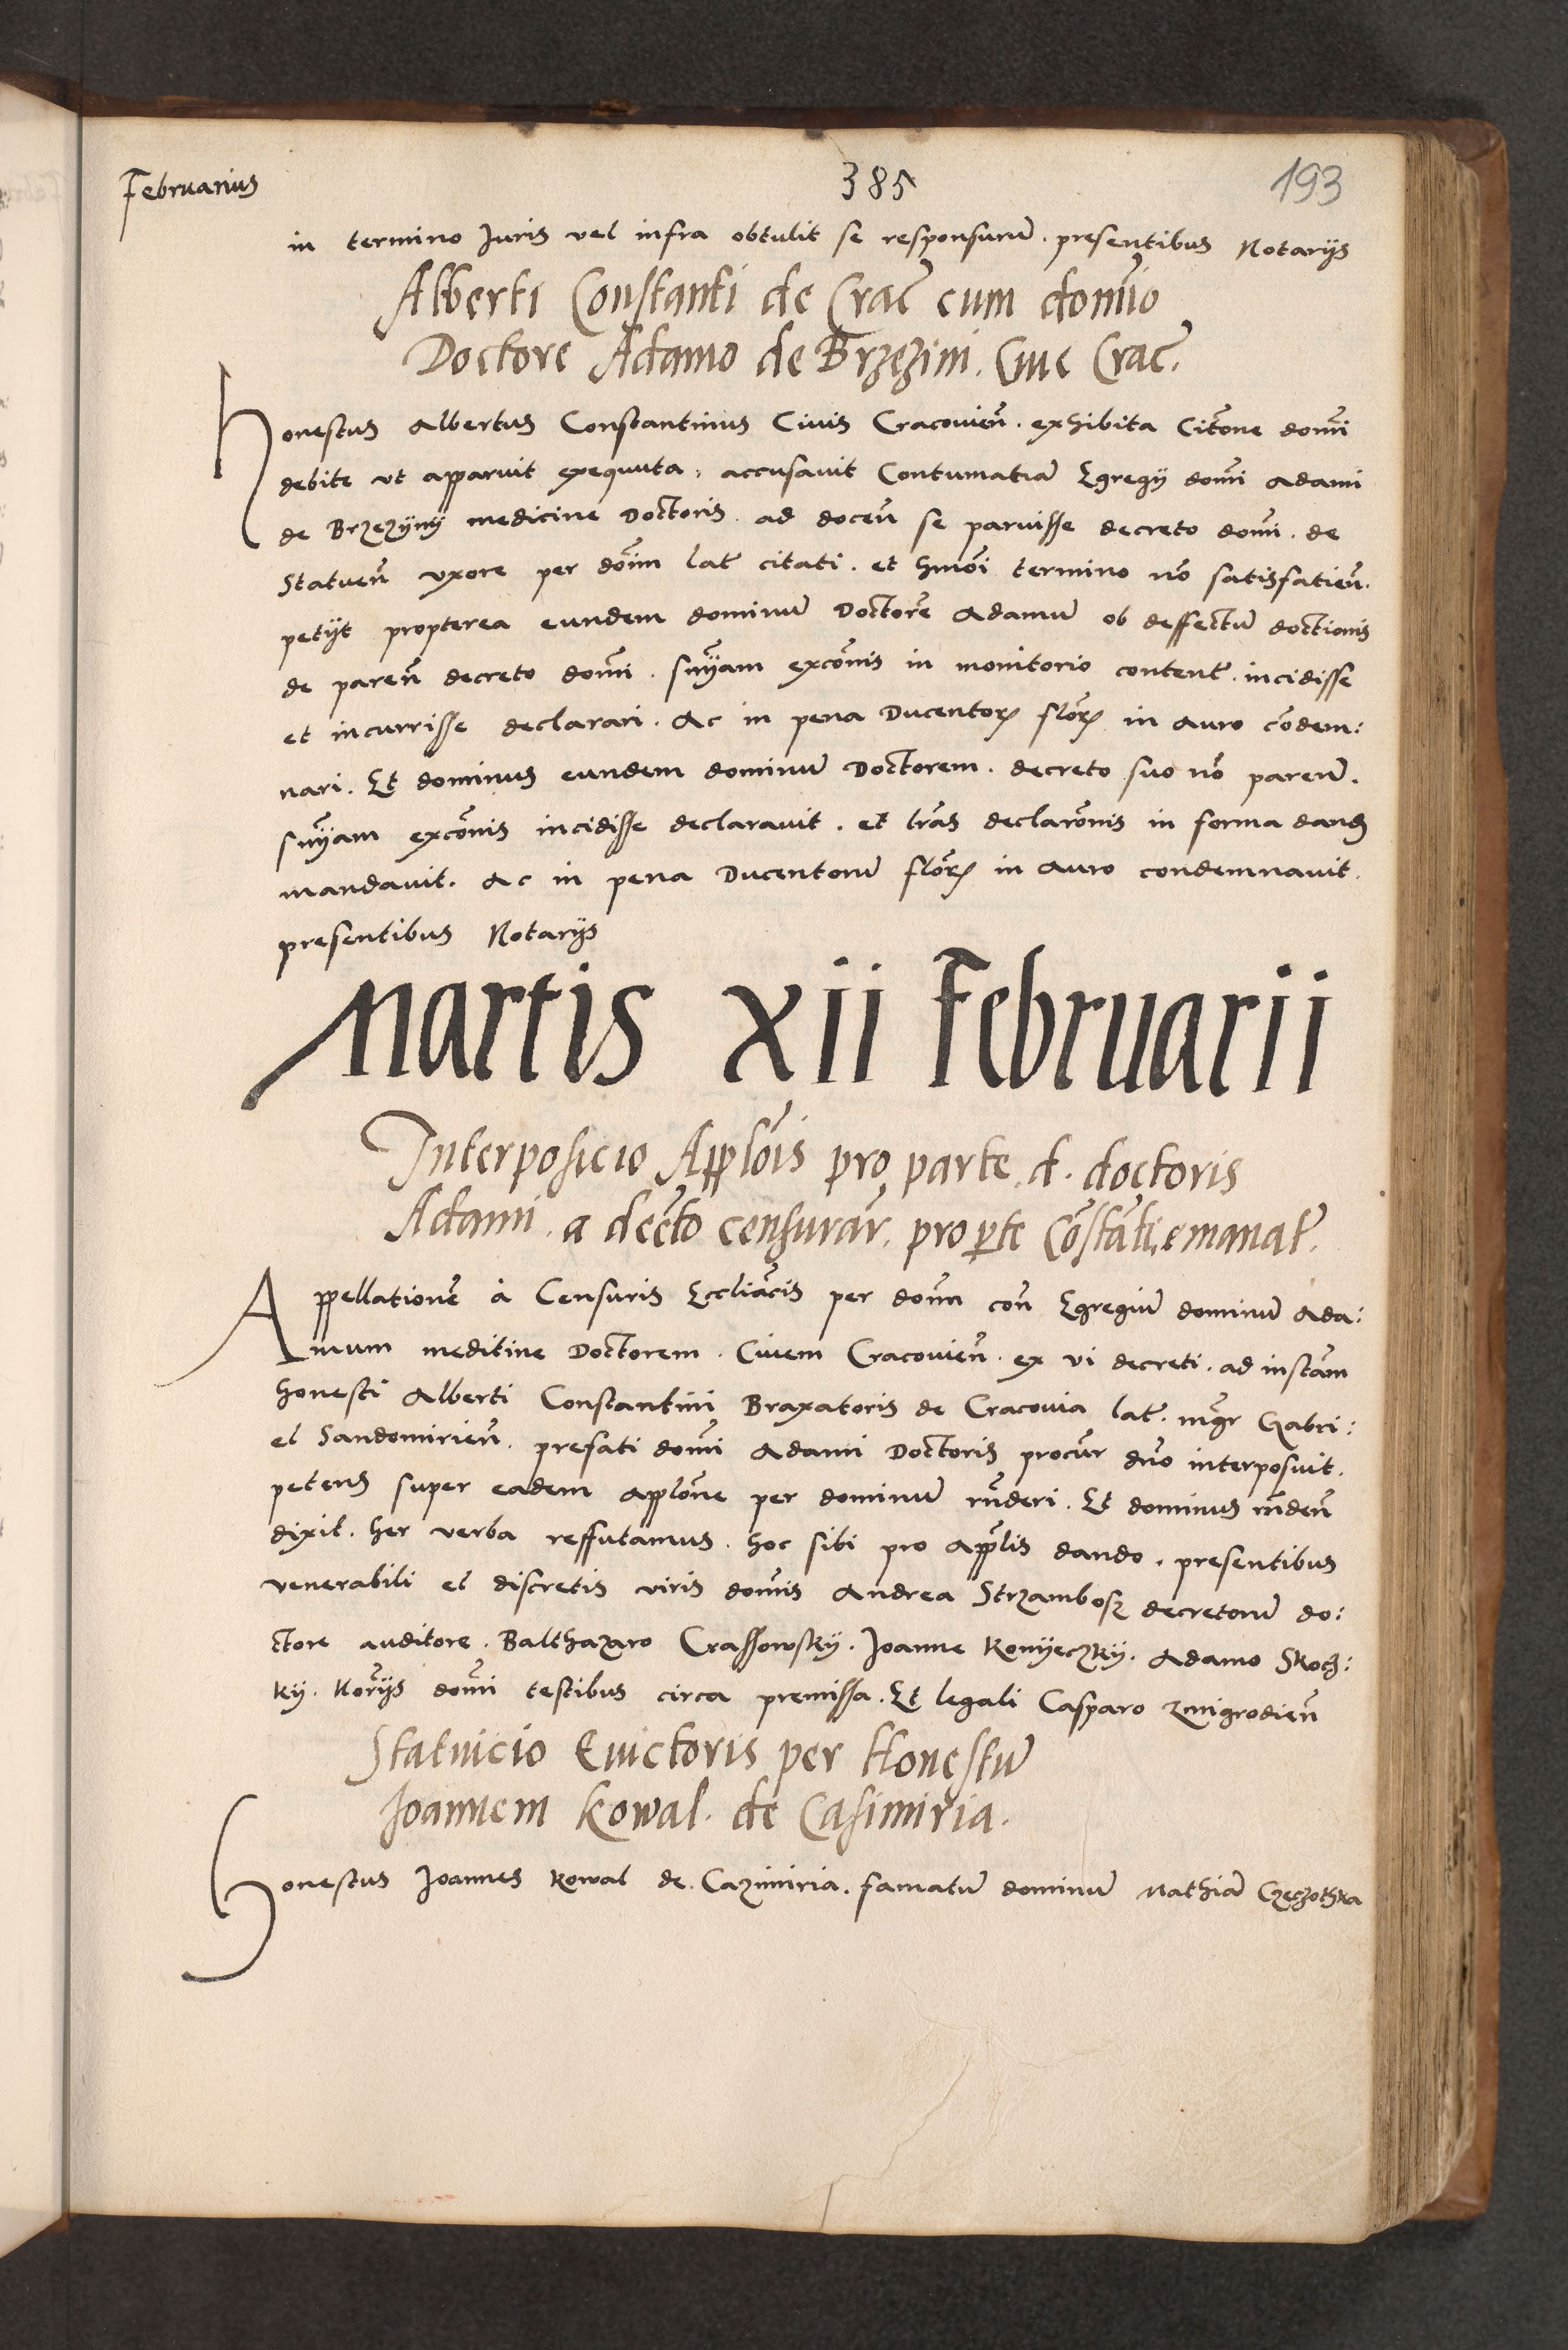 Februarius
385
193
in termino Juris vel infra obtulit se responsurū. presentibus Notarijs
Alberti Constanti de Crac̄ cum domīo
Doctore Adamo de Brzezini. Ciue Crac̄.
Honestus Albertus Constantinus Ciuis Cracouieñ. exhibita Citōne domī
debite vt apparuit exequuta, accusauit Contumatiā Egregij domī Adami
de Brzezijnij medicine Doctoris. ad doceñ se paruisse decreto domī. de
Statueñ vxore per dōim lat̄ citati. et hmōi termino nō satisfatieñ.
petijt propterea eundem dominū Doctorē Adamū ob deffectū doctionis
de pareñ decreto domī. sn̄iam excōnis in monitorio content̄. incidisse
et incurrisse declarari. Ac in pena Ducentoꝝ florꝝ in auro cōdem:
nari. Et dominus eundem dominū Doctorem. decreto suo nō pareñ.
sn̄iam excōnis incidisse declarauit. et lrās declarōnis in forma dand
mandauit. Ac in pena Ducentorū florꝝ in auro condemnauit.
presentibus Notarijs
Martis xii Februarii
Interposicio Applōis pro parte d. doctoris
Adami. a decto censurar̄. pro ꝑte Cōstāti, emanat̄.
Appellationē à Censuris Eccliācis per domī coñ Egregiū dominū Ada:
mum meditine Doctorem. Ciuem Cracouieñ. ex vi decreti. ad instām
honesti Alberti Constantini Braxatoris de Cracouia lat̄. mgr̄ Gabri:
el Sandomirieñ. prefati domī Adami Doctoris procur̄ duō interposuit.
petens super eadem applōne per dominū rn̄deri. Et dominus rn̄deñ
dixit. her verba reffutamus. hoc sibi pro applis dando. presentibus
venerabili et discretis viris domīs Andrea Strzambosz decretorū do:
ctore auditore. Balthazaro Crassowskij. Joanne Konijeczkij. Adamo Skocz:
kij. Norijs domī testibus circa premissa. Et legali Casparo Zmigrodieñ
Statuicio Euictoris per Honestū
Joannem Kowal. de Casimiria.
Honestus Joannes Kowal de Cazimiria. famatū dominū Mathiā Czeczothka